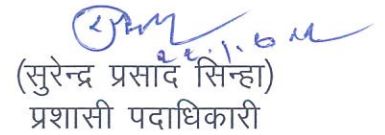 (सुरेन्द्र प्रसाद सिन्हा)
प्रशासी पदाधिकारी